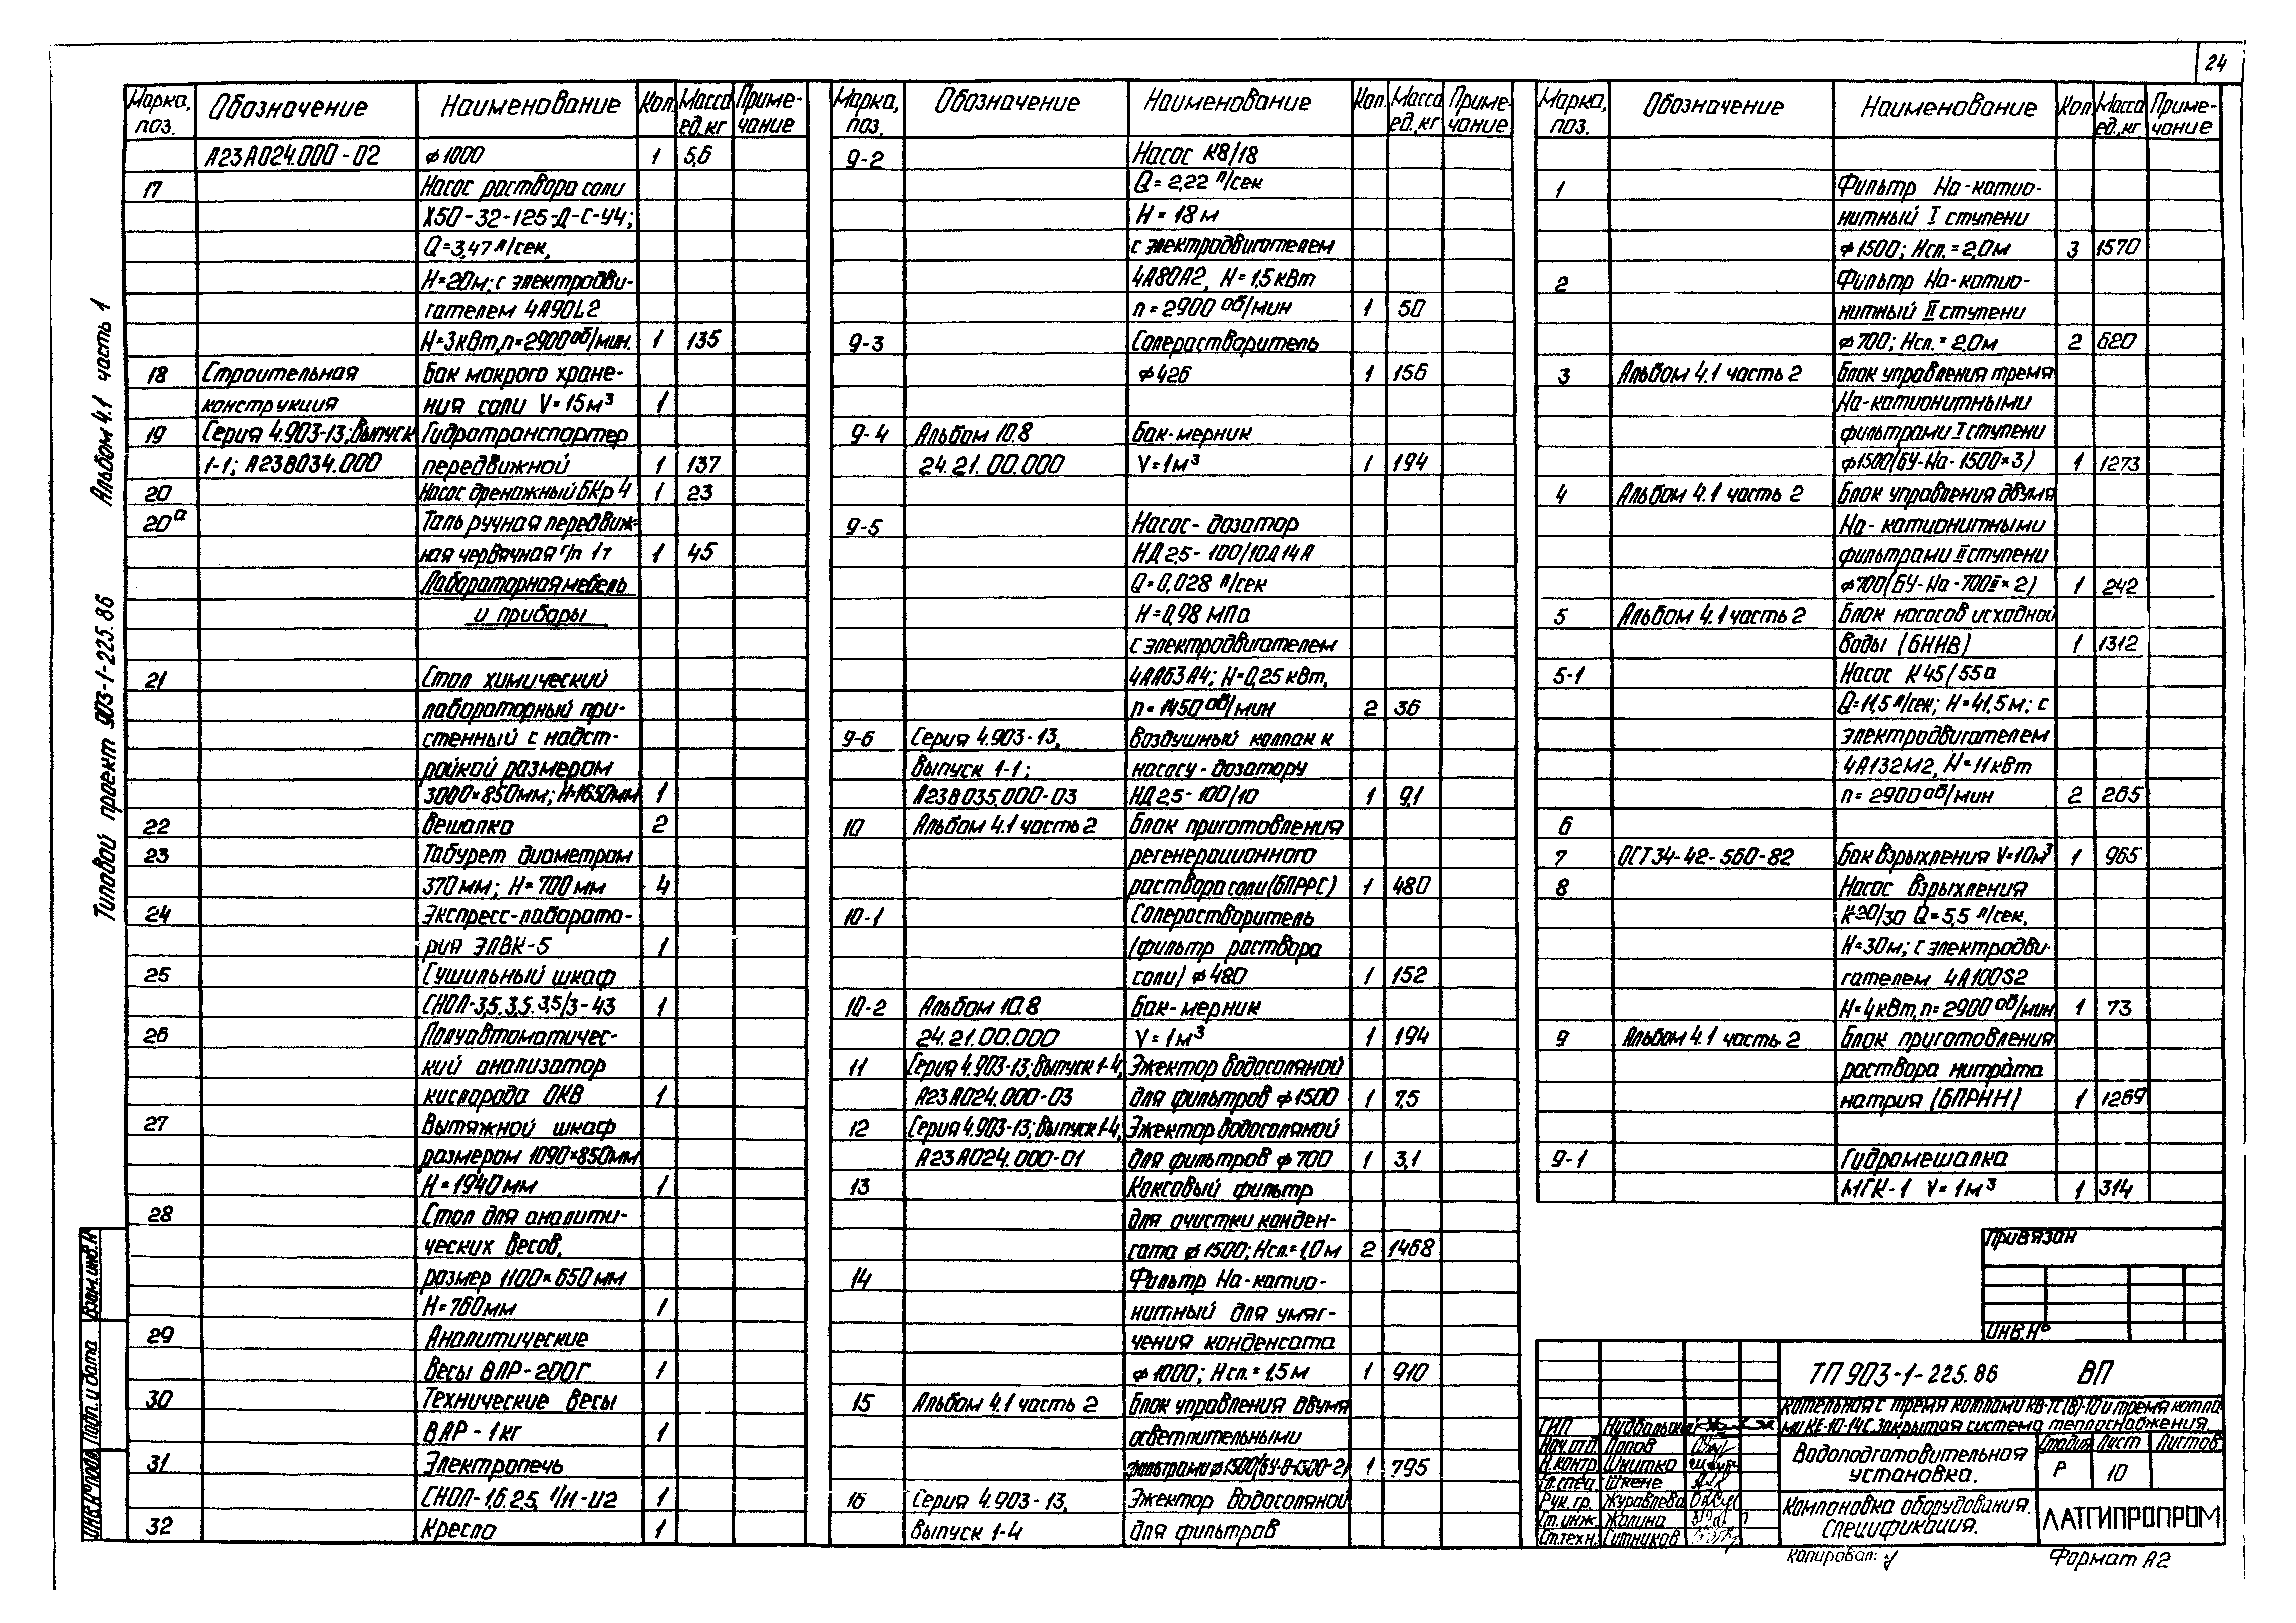 24
Марка, поз. Обозначение Наименование Кол. Масса ед.,кг Примечание
А23А024.000-02 ф1000 1 5,6
17 Насос раствора соли
Х50-32-125-Д-С-У4;
Q=3,47 л/сек,
Н=20м; с электродви-
гателем 4А90L2
N=3кВт, n=2900 об/мин. 1 135
18 Строительная Бак мокрого хране-
конструкция ния соли V=15м³ 1
19 Серия 4.903-13; Выпуск Гидротранспортер
1-1; А23В034.000 передвижной 1 137
20 Насос дренажный БКр4 1 23
20а Таль ручная передвиж-
ная червячная г/п 1т 1 45
Лабораторная мебель
и приборы
21 Стол химический
лабораторный при-
стенный с надст-
ройкой размером
3000×850мм; Н=1650мм 1
22 Вешалка 2
23 Табурет диаметром
370мм; Н=700мм 4
24 Экспресс-лаборато-
рия ЭЛВК-5 1
25 Сушильный шкаф
СНОЛ-3,5.3,5.3,5/3-43 1
26 Полуавтоматичес-
кий анализатор
кислорода ОКВ 1
27 Вытяжной шкаф
размером 1090×850мм
Н=1940мм 1
28 Стол для аналити-
ческих весов,
размер 1100×650мм
Н=760мм 1
29 Аналитические
весы ВЛР-200г 1
30 Технические весы
ВЛР-1кг 1
31 Электропечь
СНОЛ-1,6.2,5.1/11-И2 1
32 Кресло 1
Марка, поз. Обозначение Наименование Кол. Масса ед.,кг Примечание
9-2 Насос К8/18
Q=2,22 л/сек
Н=18м
с электродвигателем
4А80А2, N=1,5кВт
n=2900 об/мин 1 50
9-3 Солерастворитель
ф426 1 156
9-4 Альбом 10.8 Бак-мерник
24.21.00.000 V=1м³ 1 194
9-5 Насос-дозатор
НД2,5-100/10Д14А
Q=0,028 л/сек
Н=0,98 МПа
с электродвигателем
4АА63А4; N=0,25кВт,
n=1450 об/мин 2 36
9-6 Серия 4.903-13, Воздушный колпак к
Выпуск 1-1; насосу-дозатору
А23В035.000-03 НД2,5-100/10 1 9,1
10 Альбом 4.1 часть 2 Блок приготовления
регенерационного
раствора соли (БПРРС) 1 480
10-1 Солерастворитель
(фильтр раствора
соли) ф480 1 152
10-2 Альбом 10.8 Бак-мерник
24.21.00.000 V=1м³ 1 194
11 Серия 4.903-13; Выпуск 1-4, Эжектор водосоляной
А23А024.000-03 для фильтров ф1500 1 7,5
12 Серия 4.903-13; Выпуск 1-4, Эжектор водосоляной
А23А024.000-01 для фильтров ф700 1 3,1
13 Коксовый фильтр
для очистки конден-
сата ф1500; Нсл.=1,0м 2 1468
14 Фильтр Na-катио-
нитный для умяг-
чения конденсата
ф1000; Нсл.=1,5м 1 910
15 Альбом 4.1 часть 2 Блок управления двумя
осветлительными
фильтрами ф1500(БУ-О-1500-2) 1 795
16 Серия 4.903-13, Эжектор водосоляной
Выпуск 1-4 для фильтров
Марка, поз. Обозначение Наименование Кол. Масса ед.,кг Примечание
1 Фильтр Na-катио-
нитный I ступени
ф1500; Нсл.=2,0м 3 1570
2 Фильтр Na-катио-
нитный II ступени
ф700; Нсл.=2,0м 2 620
3 Альбом 4.1 часть 2 Блок управления тремя
Na-катионитными
фильтрами I ступени
ф1500(БУ-Na-1500×3) 1 1273
4 Альбом 4.1 часть 2 Блок управления двумя
Na-катионитными
фильтрами II ступени
ф700(БУ-Na-700II×2) 1 242
5 Альбом 4.1 часть 2 Блок насосов исходной
воды (БНИВ) 1 1312
5-1 Насос К45/55а
Q=11,5 л/сек; Н=41,5м; с
электродвигателем
4А132М2, N=11кВт
n=2900 об/мин 2 265
6
7 ОСТ34-42-560-82 Бак взрыхления V=10м³ 1 965
8 Насос взрыхления
К20/30 Q=5,5 л/сек.
Н=30м; с электродви-
гателем 4А100S2
N=4кВт, n=2900 об/мин 1 73
9 Альбом 4.1 часть 2 Блок приготовления
раствора нитрата
натрия (БПРНН) 1 1269
9-1 Гидромешалка
МГК-1 V=1м³ 1 314
Типовой проект 903-1-225.86 Альбом 4.1 часть 1
Взам.инв.N
Подп. и дата
Инв.N°подл.
Привязан
Инв.N°
ТП 903-1-225.86 ВП
Котельная с тремя котлами КВ-ТС(В)-10 и тремя котла-
ми КЕ-10-14С. Закрытая система теплоснабжения.
ГИП
Нач.отд. Попов
Н.контр. Шнитко
Гл.спец. Шкене
Рук.гр. Журавлева
Ст.инж. Жолина
Ст.техн. Ситников
Водоподготовительная
установка.
Стадия Лист Листов
Р 10
Компоновка оборудования.
Спецификация.
ЛАТГИПРОПРОМ
Копировал:
Формат А2